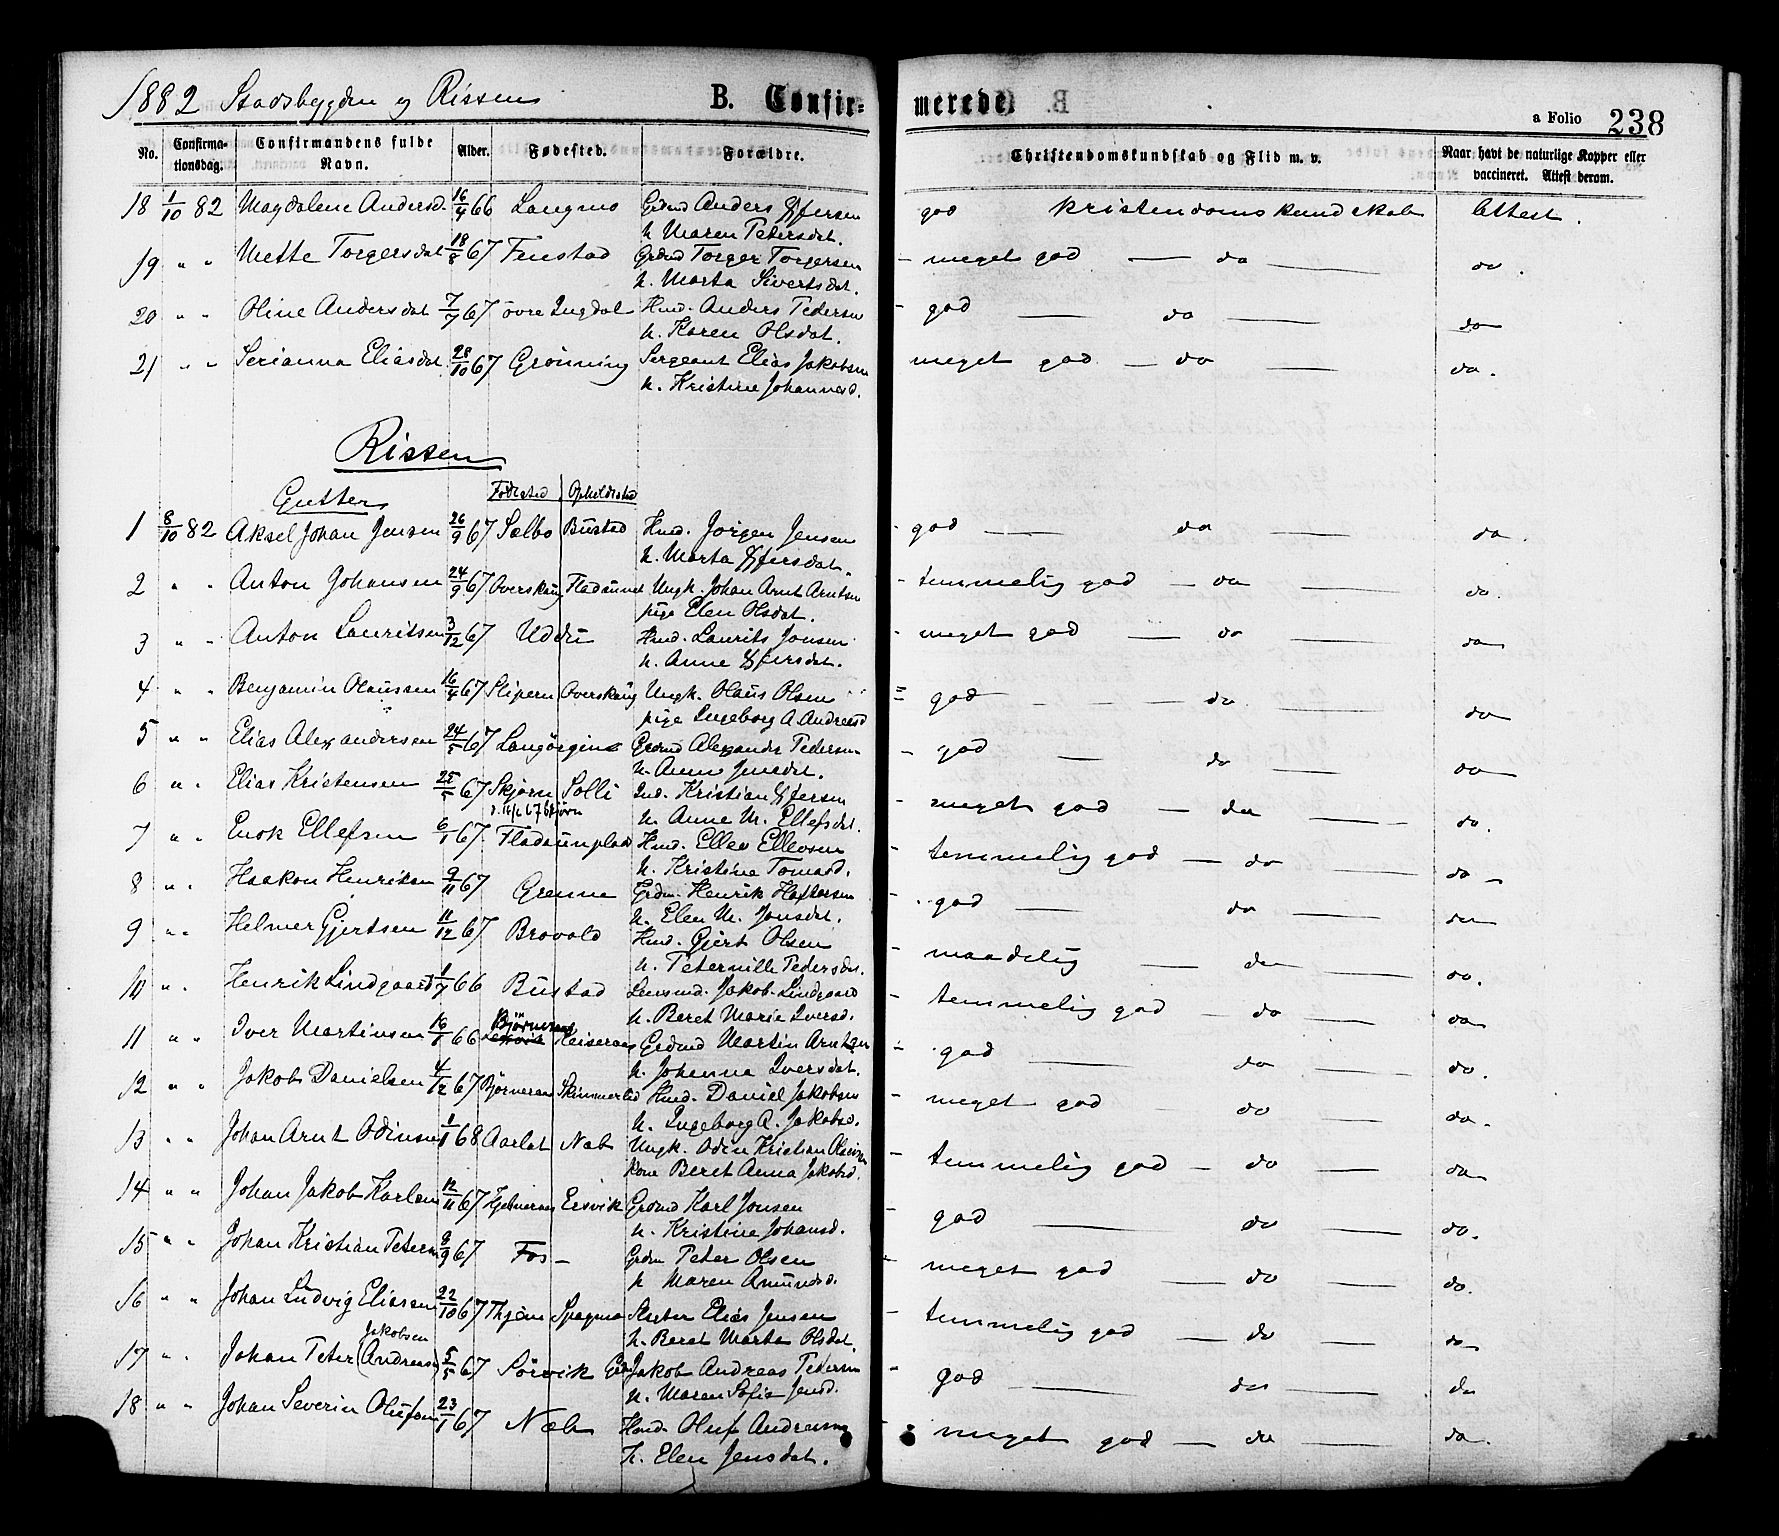 1882 Stadsbygden og Rissen B. Confir= merede. a Folio 238
No. Confirmationsdag. Confirmandens fulde Navn. Alder. Fødested. Forældre. Christendomskundskab og Flid m. v. Naar havt de naturlige Kopper eller vaccineret. Attest derom.
18 1/10 82 Magdalene Andersd. 16/4 66 Langmo Grdmd Anders god kristendomskundskab Attest.
h. Maren Petersdat.
19 " " Mette Torgersdat 18/8 67 Fenstad Grdmd Torger Torgersen - meget god — do — do.
h. Marta Sivertsdat.
20 " " Oline Andersdat 7/7 67 övre Ingdal Hmd. Anders Pedersen - god — do — do
h. Karen Olsdat.
21 " " Serianna Eliasdat. 28/10 67 Grönning Sergeant Elias Jakobsen meget god — do do.
h. Kristine Johannesd.
Rissen
Gutter Födested Opholdssted
1 8/10 82 Aksel Johan Jensen 26/9 67 Selbo Bustad Hmd. Jörgen Jensen - god — do — do.
h. Marta
2 " " Anton Johansen 24/9 67 Overskaug Ungk. Johan Arnt Arntsen - temmelig god — do — do.
pige Elen Olsdat.
3 " " Anton Lauritsen 3/12 67 Uddu Hmd. Laurits Jonsen - meget god — do — do
h. Anne
4 " " Benjamin Olaussen 16/4 67 Slipern Overskaug Ungk. Olaus Olsen = god — do — do
pige Ingeborg A. Andreasd
5 " " Elias Alexandersen 24/5 67 Grdmd Alexander Pedersen - god — do — do
h. Anne
6 " " Elias Kristensen 25/5 67 Skjörn Solli Ind. Kristian - meget god — do — do.
h. Anne M. Ellefsdat.
7 " " Enok Ellefsen 6/1 67. Hmd. Ellev Ellevsen - temmelig god — do — do -
h. Kristine Tomasd.
8 " " Haakon Henriksen 9/11 67 Grenne Grdm. Henrik - god — do — do
h. Elen M. Jonsdat.
9 " " Helmer Gjertsen 11/12 67 Brovold Hmd. Gjert Olsen - maadelig — do — do.
h. Peternille Pedersdat.
10 " " Henrik Lindgaard 1/7 66 Bustad Lensmd. Jakob Lindgaard - temmelig god — do — do
h. Beret Marie Iversd.
11 " " Iver Martinsen 16/1 66 Grdmd Martin Arntsen - god — do — do.
h. Johanna Iversdat.
12 " " Jakob Danielsen 4/12 67 Björneran Hmd. Daniel Jakobsen - meget god — do — do.
h. Ingeborg A. Jakobsd.
13 " " Johan Arnt Odinsen 1/1 68 Aarlot Næb Ungk. Odin Kristian - temmelig god — do — do
kone Beret Anna Jakobsd.
14 " " Johan Jakob Karlsen 12/11 67 Ersvik Grdmd Karl Jonsen - god — do — do.
h. Kristine Johansd.
15 " " Johan Kristian Petersen 8/9 67 Fos - Grdm Peter Olsen - meget god — do — do.
h Maren Amundsd.
16 " " Johan Ludvig Eliasen 22/10 67 Elias Jensen - temmelig god — do — do
h. Beret Marta Olsdat.
Jakobsen
17 " " Johan Peter (Andreasen) 5/5 67 Sörvik Jakob Andreas Pedersen - god — do — do
h. Maren Sofie Jensd.
18 " " Johan Severin Olufsen 23/1 67 Næb Hmd. Oluf Andreasen meget god — do — do.
h. Elen Jensdat.